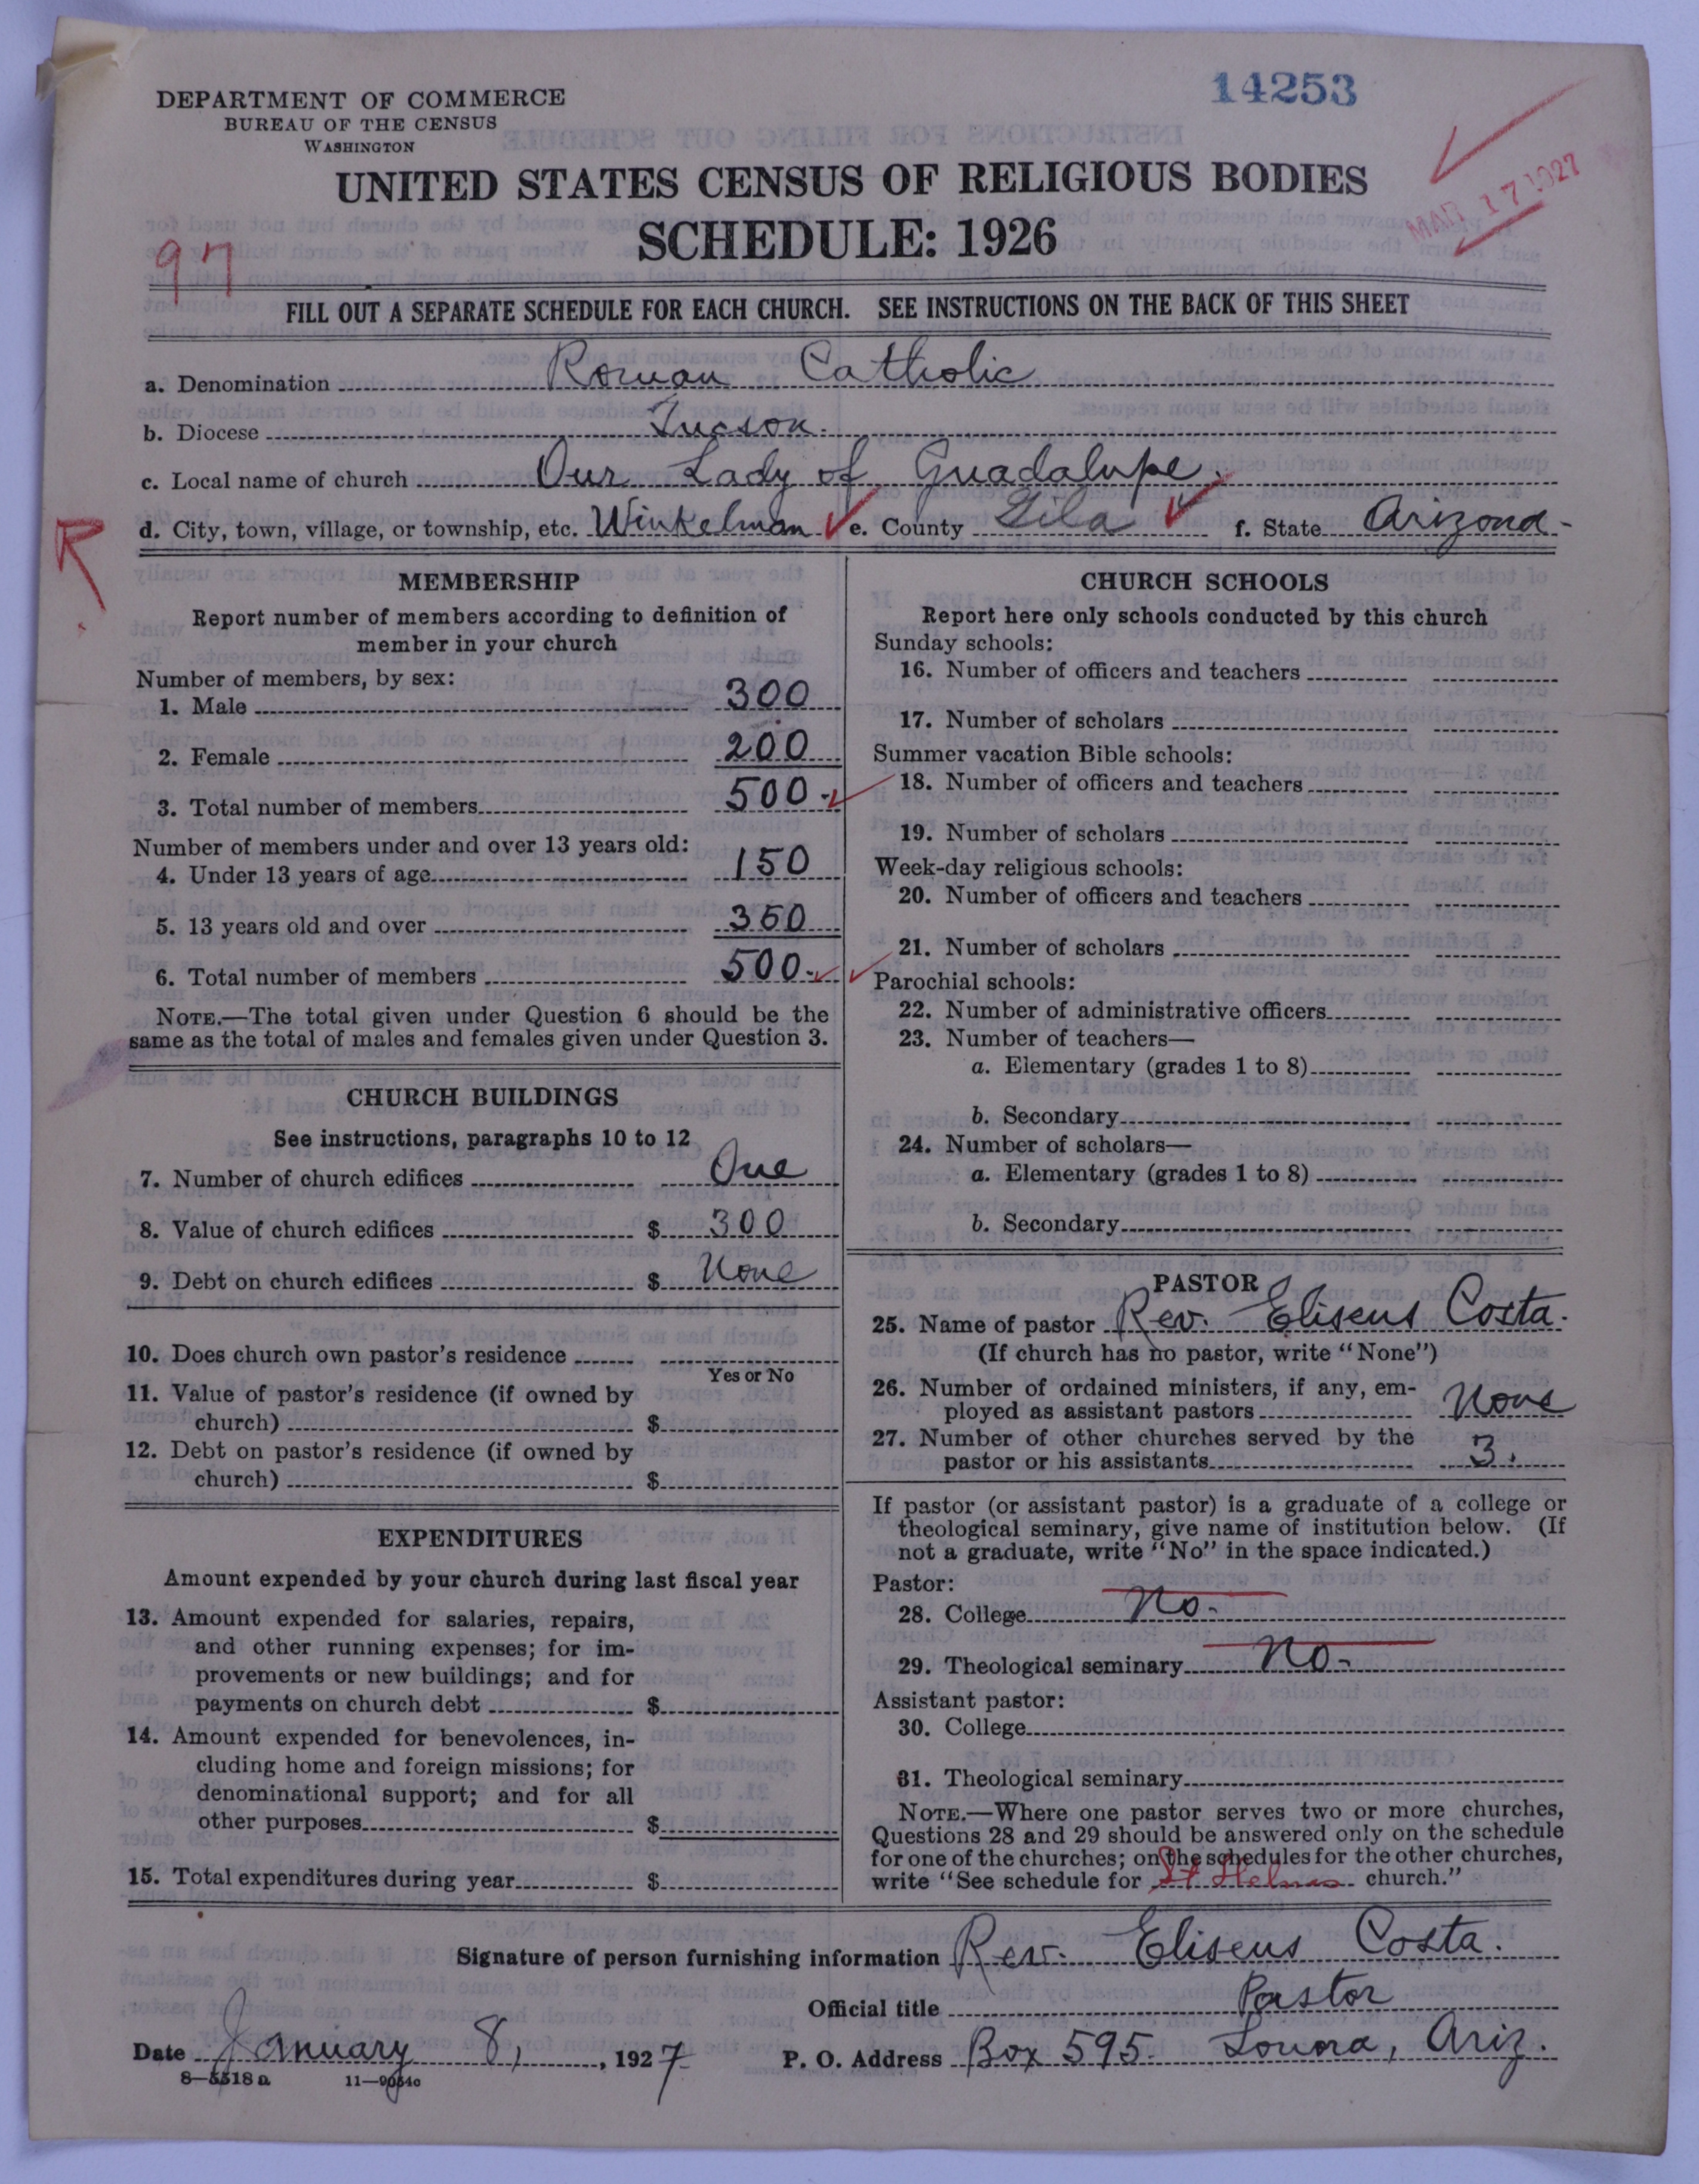 14253
DEPARTMENT OF COMMERCE
BUREAU OF THE CENSUS
WASHINGTON
UNITED STATES CENSUS OF RELIGIOUS BODIES
MAR 17 1927
SCHEDULE: 1926
97
FILL OUT A SEPARATE SCHEDULE FOR EACH CHURCH. SEE INSTRUCTIONS ON THE BACK OF THIS SHEET
a. Denomination Roman Catholic
b. Diocese Tucson.
c. Local name of church Our Lady of Guadalupe.
d. City, town, village, or township, etc. Winkelman e. County Gila f. State Arizona-
R
MEMBERSHIP
Report number of members according to definition of
member in your church
Number of members, by sex:
1. Male 300
2. Female 200
3. Total number of members 500-
Number of members under and over 13 years old:
4. Under 13 years of age 150
5. 13 years old and over 350
6. Total number of members 500-
NOTE.—The total given under Question 6 should be the
same as the total of males and females given under Question 3.
CHURCH BUILDINGS
See instructions, paragraphs 10 to 12
7. Number of church edifices One
8. Value of church edifices $ 300
9. Debt on church edifices $ None
10. Does church own pastor's residence
Yes or No
11. Value of pastor's residence (if owned by
church) $
12. Debt on pastor's residence (if owned by
church) $
EXPENDITURES
Amount expended by your church during last fiscal year
13. Amount expended for salaries, repairs,
and other running expenses; for im-
provements or new buildings; and for
payments on church debt $
14. Amount expended for benevolences, in-
cluding home and foreign missions; for
denominational support; and for all
other purposes $
15. Total expenditures during year $
CHURCH SCHOOLS
Report here only schools conducted by this church
Sunday schools:
16. Number of officers and teachers
17. Number of scholars
Summer vacation Bible schools:
18. Number of officers and teachers
19. Number of scholars
Week-day religious schools:
20. Number of officers and teachers
21. Number of scholars
Parochial schools:
22. Number of administrative officers
23. Number of teachers—
a. Elementary (grades 1 to 8)
b. Secondary
24. Number of scholars—
a. Elementary (grades 1 to 8)
b. Secondary
PASTOR
25. Name of pastor Rev. Eliseus Costa.
(If church has no pastor, write "None")
26. Number of ordained ministers, if any, em-
ployed as assistant pastors None
27. Number of other churches served by the
pastor or his assistants 3.
If pastor (or assistant pastor) is a graduate of a college or
theological seminary, give name of institution below. (If
not a graduate, write "No" in the space indicated.)
Pastor:
28. College No-
29. Theological seminary No-
Assistant pastor:
30. College
31. Theological seminary
NOTE.—Where one pastor serves two or more churches,
Questions 28 and 29 should be answered only on the schedule
for one of the churches; on the schedules for the other churches,
write "See schedule for St church."
Signature of person furnishing information Rev. Eliseus Costa.
Official title Pastor
Date January 8, 1927 P. O. Address Box 595. Sonora, Ariz.
8—5518a